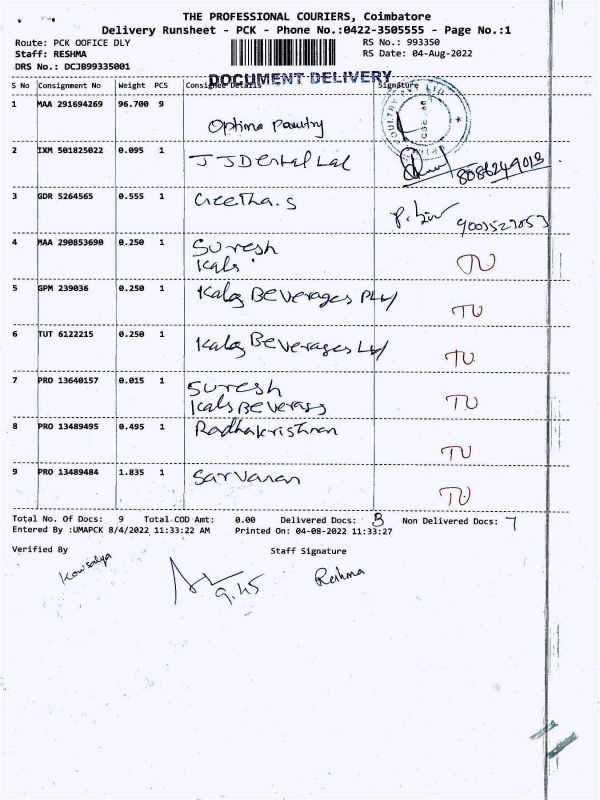 THE PROFESSIONAL COURIERS, Coimbatore
Delivery Runsheet - PCK - Phone No.:0422-3505555 - Page No.:1
Route: PCK OOFICE DLY RS No.: 993350
Staff: RESHMA RS Date: 04-Aug-2022
DRS No.: DCJB99335001
DOCUMENT DELIVERY
S No Consignment No Weight PCS Consignee Details Signature
1 MAA 291694269 96.700 9
Optima Poultry
2 IXM 501825022 0.095 1 JJ Dental Lal
8086249018
3 GDR 5264565 0.555 1 Geetha.S
4 MAA 290853690 0.250 1 Suresh
Kals TU
5 GPM 239036 0.250 1 Kals Beverages TU
6 TUT 6122215 0.250 1 Kals Beverages TU
7 PRO 13640157 0.015 1 Suresh
Kals Beverags TU
8 PRO 13489495 0.495 1 Radhakrishnan TU
9 PRO 13489484 1.835 1 Sarvanan TU
Total No. Of Docs: 9 Total COD Amt: 0.00 Delivered Docs: 3 Non Delivered Docs: 7
Entered By :UMAPCK 8/4/2022 11:33:22 AM Printed On: 04-08-2022 11:33:27
Verified By Staff Signature
Kowsalya 9.45 Reshma